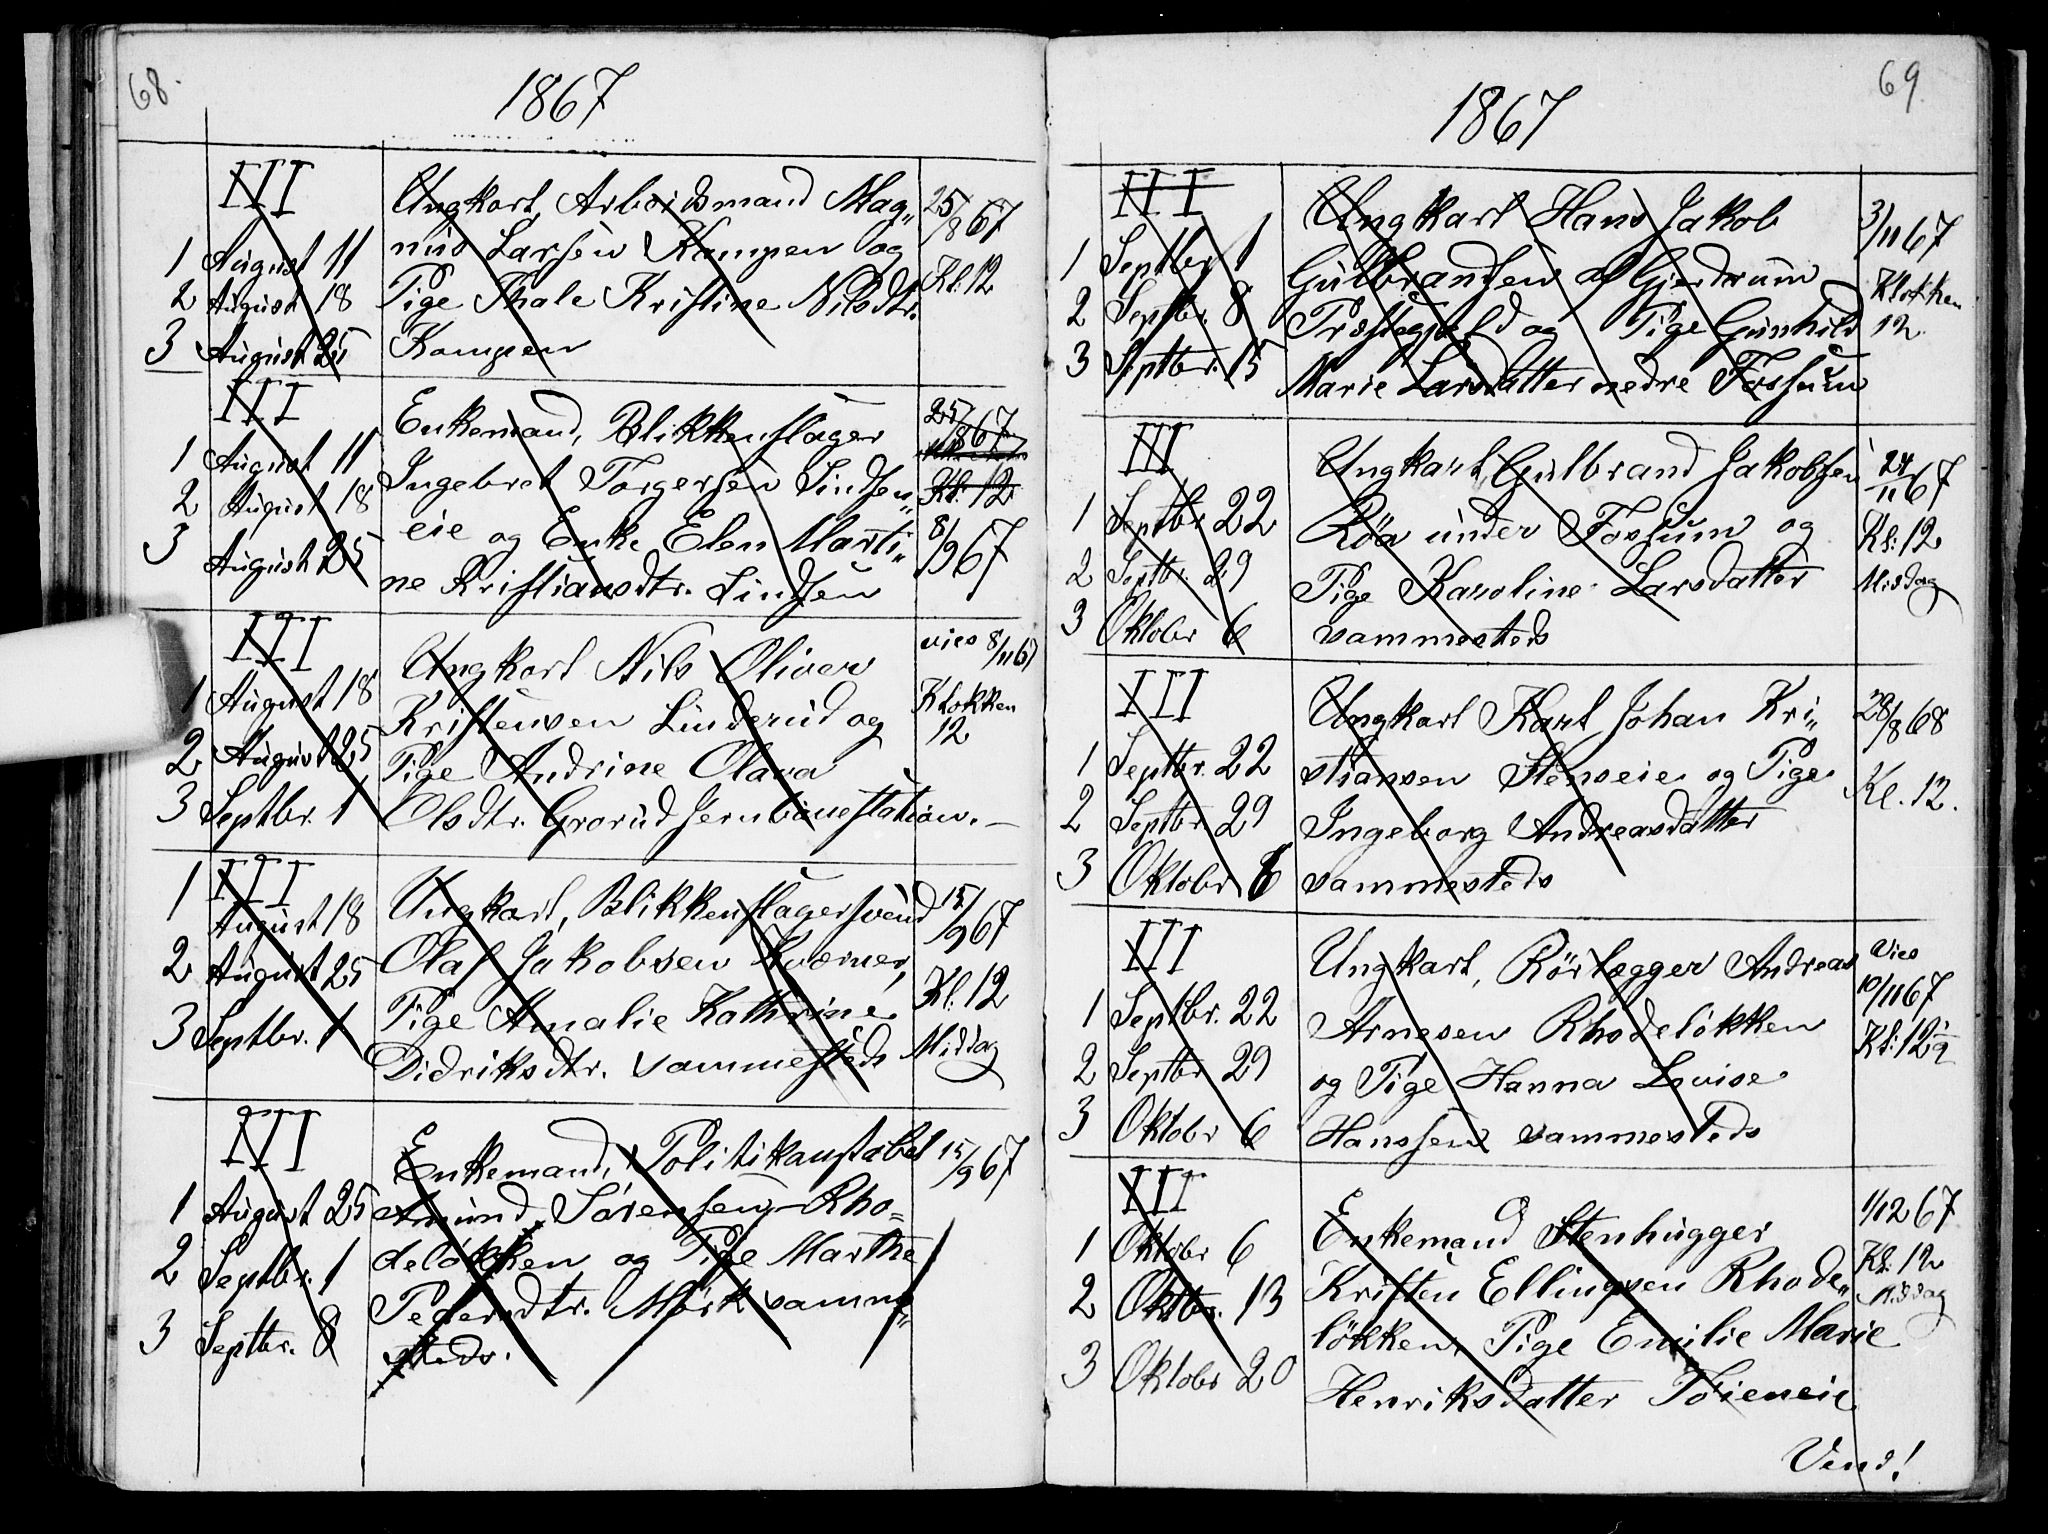 68.
1867
III
1 August 11
2 August 18
3 August 25
Ungkarl, Arbeidsmand Mag„
nus Larsen Kampen og
Pige Thale Kristine Nilsdtr.
Kampen
25/8 67
Kl: 12
III
1 August 11
2 August 18
3 August 25
Enkemand, Blikkenslager
Ingebret Torgersen Lindsen„
eie og Enke Elen Marti„
ne Kristiansdtr. Lindsen
25/8 67
Kl: 12
8/9 67
III
1 August 18
2 August 25
3 Septbr. 1
Ungkarl Nils Oliver
Kristensen Linderud og
Pige Andrine Olava
Olsdtr. Grorud Jernbanestation.
vies 8/11 67
Klokken
12
III
1 August 18
2 August 25
3 Septbr. 1
Ungkarl, Blikkenslagersvend
Olaf Jakobsen Kværner,
Pige Amalie Kathrine
Didriksdtr. sammesteds
15/9 67
Kl. 12
Middag
III
1 August 25
2 Septbr. 1
3 Septbr. 8
Enkemand, Politikonstabel
Amund Sørensen Rho=
deløkken og Pige Marthe
Pedersdtr. Mørk samme„
steds.
15/9 67
69.
1867
III
1 Septbr 1
2 Septbr. 8
3 Septbr. 15
Ungkarl Hans Jakob
Gulbrandsen af Gjerdrum
Præstegjeld og Pige Gunhild
Marie Larsdatter nedre Fossum
3/11 67
Klokken
12.
III
1 Septbr 22
2 Septbr. 29
3 Oktober 6
Ungkarl Gulbrand Jakobsen
Röa under Fossum og
Pige Karoline Larsdatter
sammesteds
24/11 67
Kl: 12
Middag
III
1 Septbr. 22
2 Septbr 29
3 Oktober 6
Ungkarl Karl Johan Kri„
stiansen Stenseie og Pige
Ingeborg Andreasdatter
sammesteds
28/8 68
Kl. 12.
III
1 Septbr. 22
2 Septbr 29
3 Oktobr 6
Ungkarl, Rörlægger Andreas
Arnesen Rhodeløkken
og Pige Hanna Lovise
Hanssen sammesteds
Vies
10/11 67
Kl: 12 1/2
III
1 Oktobr 6
2 Oktbr. 13
3 Oktobr 20
Enkemand Stenhugger
Kristen Ellingsen Rhode„
løkken, Pige Emilie Marie
Henriksdatter Töieneie
1/12 67
Kl: 12
Middag
Vend!